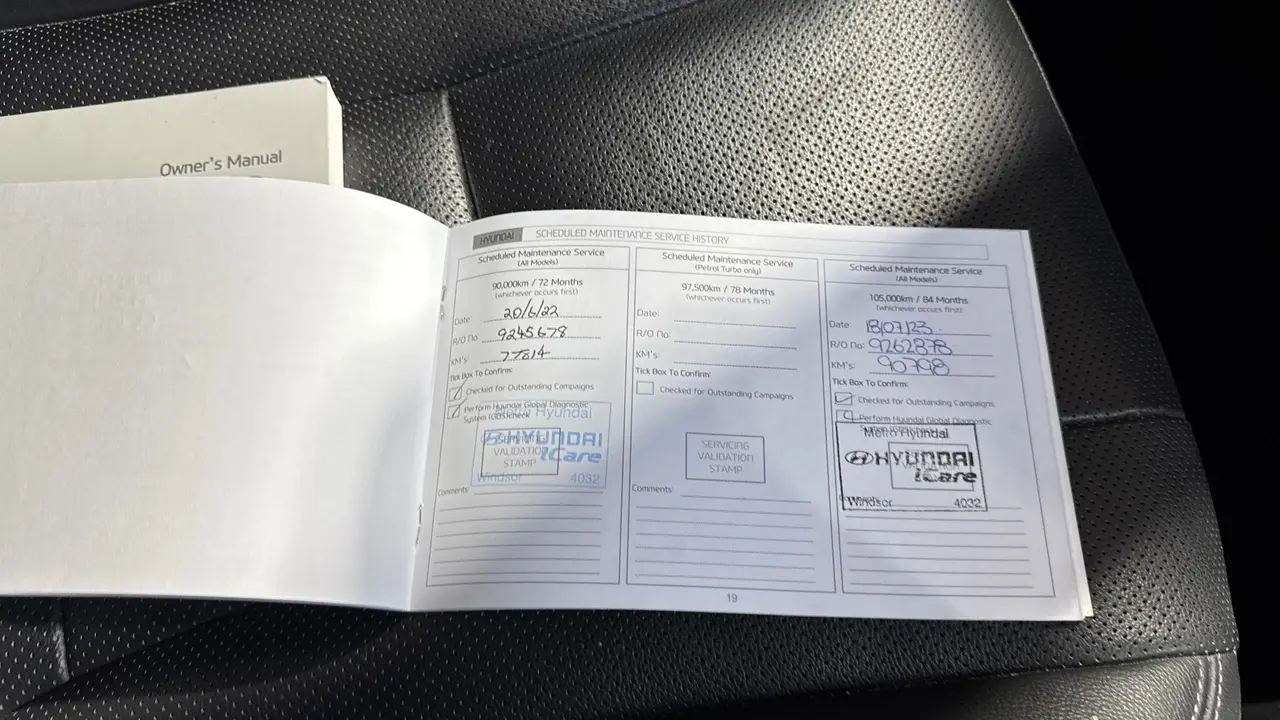 Owner's Manual
HYUNDAI SCHEDULED MAINTENANCE SERVICE HISTORY
Scheduled Maintenance Service
(All Models)
90,000km / 72 Months
(whichever occurs first)
Date: 20/6/22
R/O No: 9245678
KM's: 77814
Tick Box To Confirm:
Checked for Outstanding Campaigns
Perform Hyundai Global Diagnostic
System (GDS) check
Metro Hyundai
HYUNDAI
iCare
Windsor 4032
SERVICING
VALIDATION
STAMP
Comments:
Scheduled Maintenance Service
(Petrol Turbo only)
97,500km / 78 Months
(whichever occurs first)
Date:
R/O No:
KM's:
Tick Box To Confirm:
Checked for Outstanding Campaigns
SERVICING
VALIDATION
STAMP
Comments:
Scheduled Maintenance Service
(All Models)
105,000km / 84 Months
(whichever occurs first)
Date: 18/07/23
R/O No: 9262878
KM's: 90798
Tick Box To Confirm:
Checked for Outstanding Campaigns
Perform Hyundai Global Diagnostic
System (GDS) check
Metro Hyundai
HYUNDAI
iCare
Windsor 4032
Comments:
19